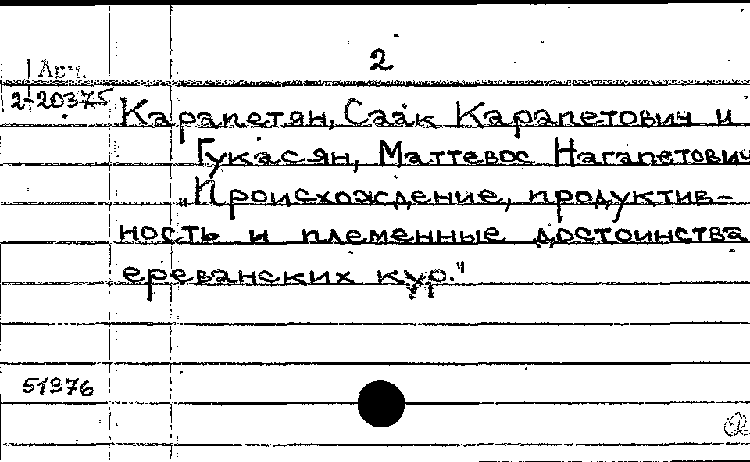 2
Арм.
2-20375
Карапетян, Саак Карапетович и
Гукасян, Маттевос Нагапетович
„Происхождение, продуктив-
ность и племенные достоинства
ереванских кур."
51376